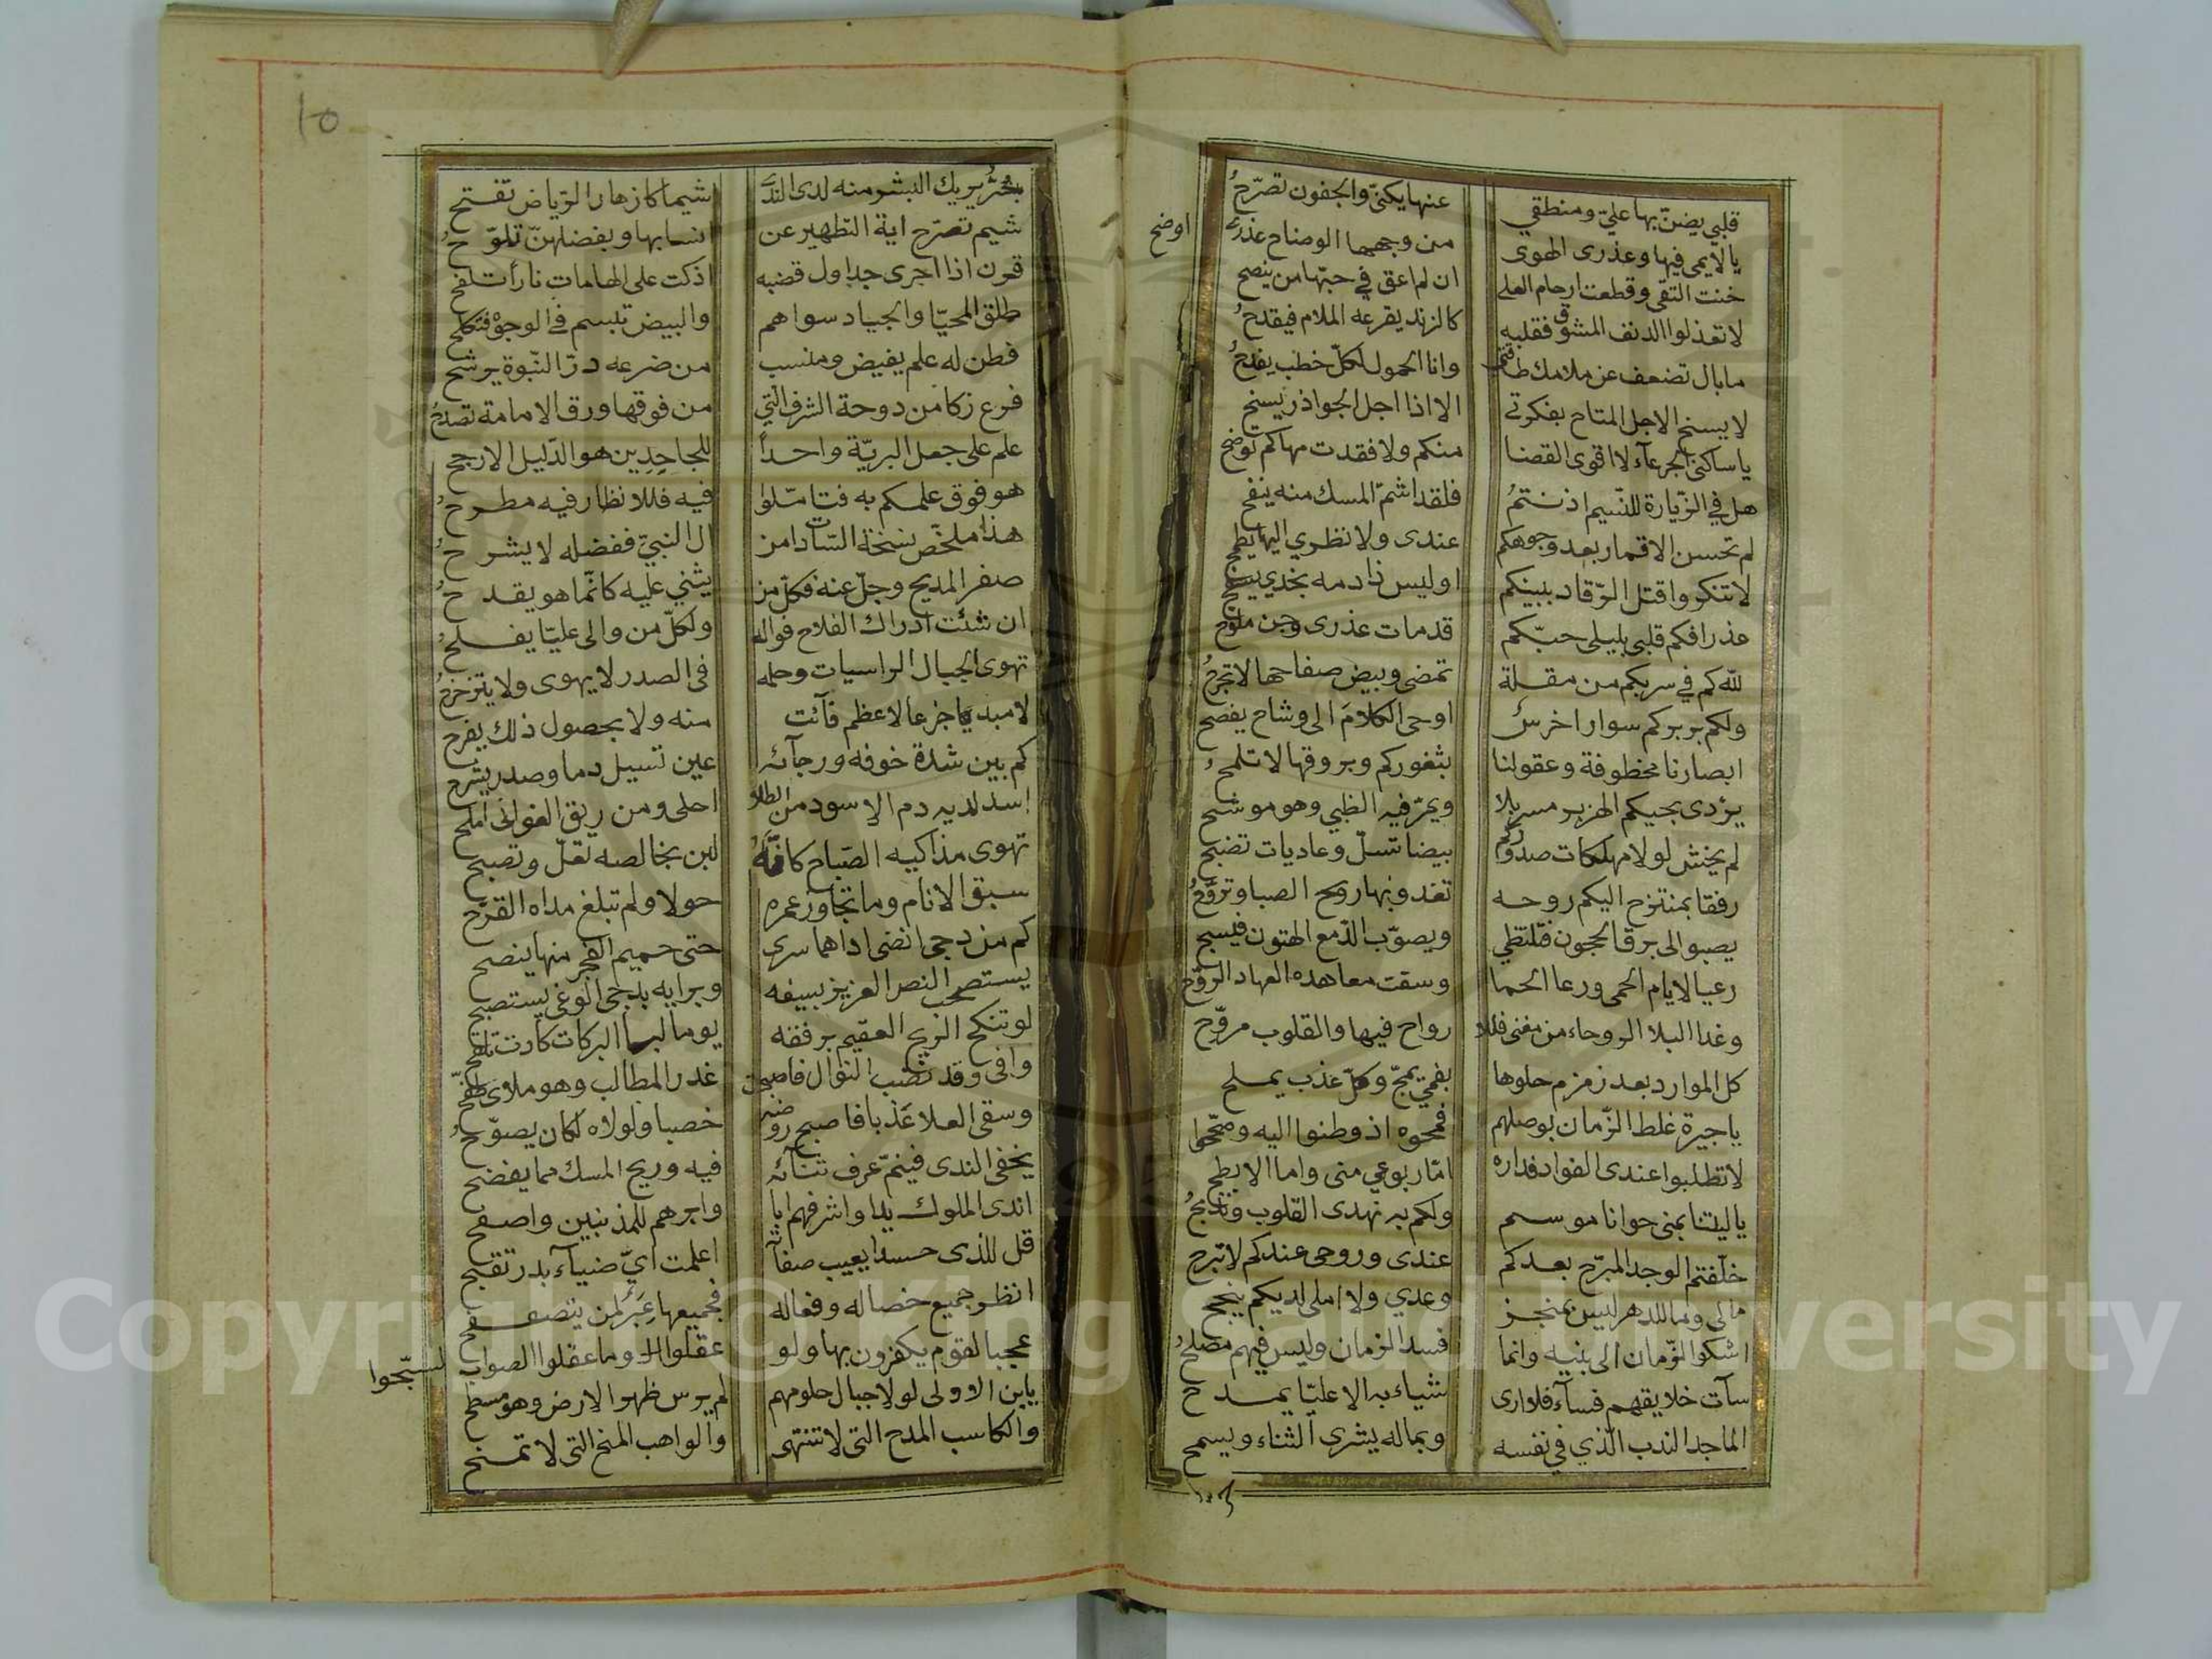 قلبي يضنّ بها عليّ ومنطقي عنها يكنّي والجفون تصرّحُ
يا لايمي فيها وعذرى الهوى من وجهها الوضاح عذرى اوضح
خنت التقى وقطعت ارحام العلى ان لم اعق في حبّها من ينصح
لا تعذلوا الدنف المشوق فقلبه كالزند يقرعه الملام فيقدحُ
ما بال تضعف عن ملامك طاقتى وانا الحمول لكلّ خطب يفدحُ
لا يسنح الاجل المتاح بفكرتي الا اذا اجل الجواذر يسنح
يا ساكنى الجرعآء لا اقوى الفضا منكم ولا فقدت مهاكم توضح
هل في الزيارة للنّسيم اذنتمُ فلقد اشمّ المسك منه ينفح
لم تحسن الاقمار بعد وجوهكم عندى ولا نظري اليها يطمح
لا تنكروا قتل الرّقاد ببينكم اوليس ذا دمه بخدي يسفح
عذرا فكم قلبي بليلى حبّكم قد مات عذرى وجن ملوّح
للّه كم في سربكم من مقلة تمضى وبيض صفاحها لا تجرحُ
ولكم بربركم سوار اخرسٌ اوحى الكلامَ الى وشاح يفصح
ابصارنا مخطوفة وعقولنا بثغوركم وبروقها لا تلمحُ
يردى بحيكم الهزبر مسربلا ويمرّ فيه الظبي وهو موشح
لم يخش لولا مهلكات صدودكم بيضا تسلّ وعاديات تضبح
رفقا بمنتزح اليكم روحه تغدو بها روح الصبا وتروّحُ
يصبو الى برق الحجون فتلتظي ويصوّب الدّمع الهتون فيسبح
رعيا لايام الحمى ورعا الحما وسقت معاهده العهاد الروّح
وغدا البلا الروحاء من مغنى فللا رواح فيها والقلوب مروّح
كل الموارد بعد زمزم حلوها بفمي يمجّ وكلّ عذب يملح
يا جيرة غلط الزّمان بوصلهم فمحوه اذ وطنوا اليه وصحّحوا
لا تطلبوا عندى الفواد فداره امّا ربوعي منى واما الابطح
يا ليتنا بمنى حوانا موسم ولكم به نهدى القلوب ونذبحُ
خلّفتم الوجد المبرّح بعدكم عندى وروحى عندكم لا تبرح
مالى وما للدهر ليس بمنجز وعدي ولا املى لديكم ينجح
اشكوا الزّمان الى بنيه وانما فسد الزمان وليس فيهم مصلحُ
سآت خلايقهم فسآء فلا ارى شياء به الا عليّا يمدح
الماجد الندب الّذي في نفسه وبماله يشرى الثناء ويسمح
بحرٌ يريك البشر منه لدى الندى شيما كازهار الرّياض تفتح
شيم تصرّح اية التطهير عن انسابها وبفضلهنّ تلوّحُ
قرن اذا اجرى جداول قضبه اذكت على الهامات نارا تلفح
طلق المحيّا والجياد سواهم والبيض تبسم في الوجوه فتكلح
فطن له علم يفيض ومنسب من ضرعه درّ النّبوة يرشح
فرع زكا من دوحة الشرف التي من فوقها ورق الامامة تصدحُ
علم على جعل البريّة واحداً للجاحدين هو الدّليل الارجح
هو فوق علمكم به فتامّلوا فيه فللانظار فيه مطرحُ
هذا ملخّص نسخة السّادات من ال النبيّ ففضله لا يشرحُ
صفر المديح وجلّ عنه فكلّ من يثني عليه كانّما هو يقدحُ
ان شئت ادراك الفلاح فواله ولكلّ من والى عليّا يفلحُ
تهوى الجبال الراسيات وحلمه فى الصدر لا يهوى ولا يتزحزحُ
لا مبديا جزعا لاعظم فآئت منه ولا بحصول ذلك يفرح
كم بين شدة خوفه ورجآئه عين تسيل دما وصدر يشرح
اسد لديه دم الاسود من الطلا احلى ومن ريق الغوانى املح
تهوى مذاكيه الصّباح كانّهُ لبن بخالصه تعلّ وتصبح
سبق الانام وما تجاوز عمره حولا ولم تبلغ مداه القرّح
كم من دجى انضى اذاهما سرى حتى حميم الفجر منها ينضح
يستصحب النصر العزيز بسيفه وبرايه بدجى الوغى يستصبح
لو تنكح الريح العقيم برفقه يوما لبرا البركات كادت تلقح
وافى وقد نضب النوال فاصبحت غدر المطالب وهو ملاى طفّح
وسقى العلا عذبا فاصبح روضه خصبا ولولاه لكان يصوّحُ
يخفى الندى فينمّ عرف ثنآئه فيه وريح المسك مما يفضح
اندى الملوك يدا واشرفهم ابا وابرهم للمذنبين واصفح
قل للذى حسدا يعيب صفاته اعلمت ايّ ضيآء بدر تقبح
انظر جميع خصاله وفعاله فجميعها عِبَرٌ لمن يتصفح
عجبا لقوم يكفرون بها ولو عقلوا وما عقلوا الصواب لسبّحوا
يا بن الاولى لولا جبال حلومهم لم يرس ظهر الارض وهو مسطح
والكاسب المدح التى لا تنتهى والواهب المنح التى لا تمنح